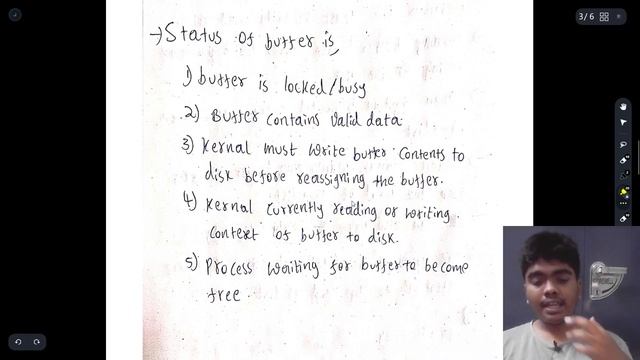 → Status of buffer is,
1) buffer is locked/busy
2) Buffer contains valid data.
3) Kernal must write buffer contents to
disk before reassigning the buffer.
4) Kernal currently reading or writing
context of buffer to disk.
5) Process waiting for buffer to become
free.
3/6